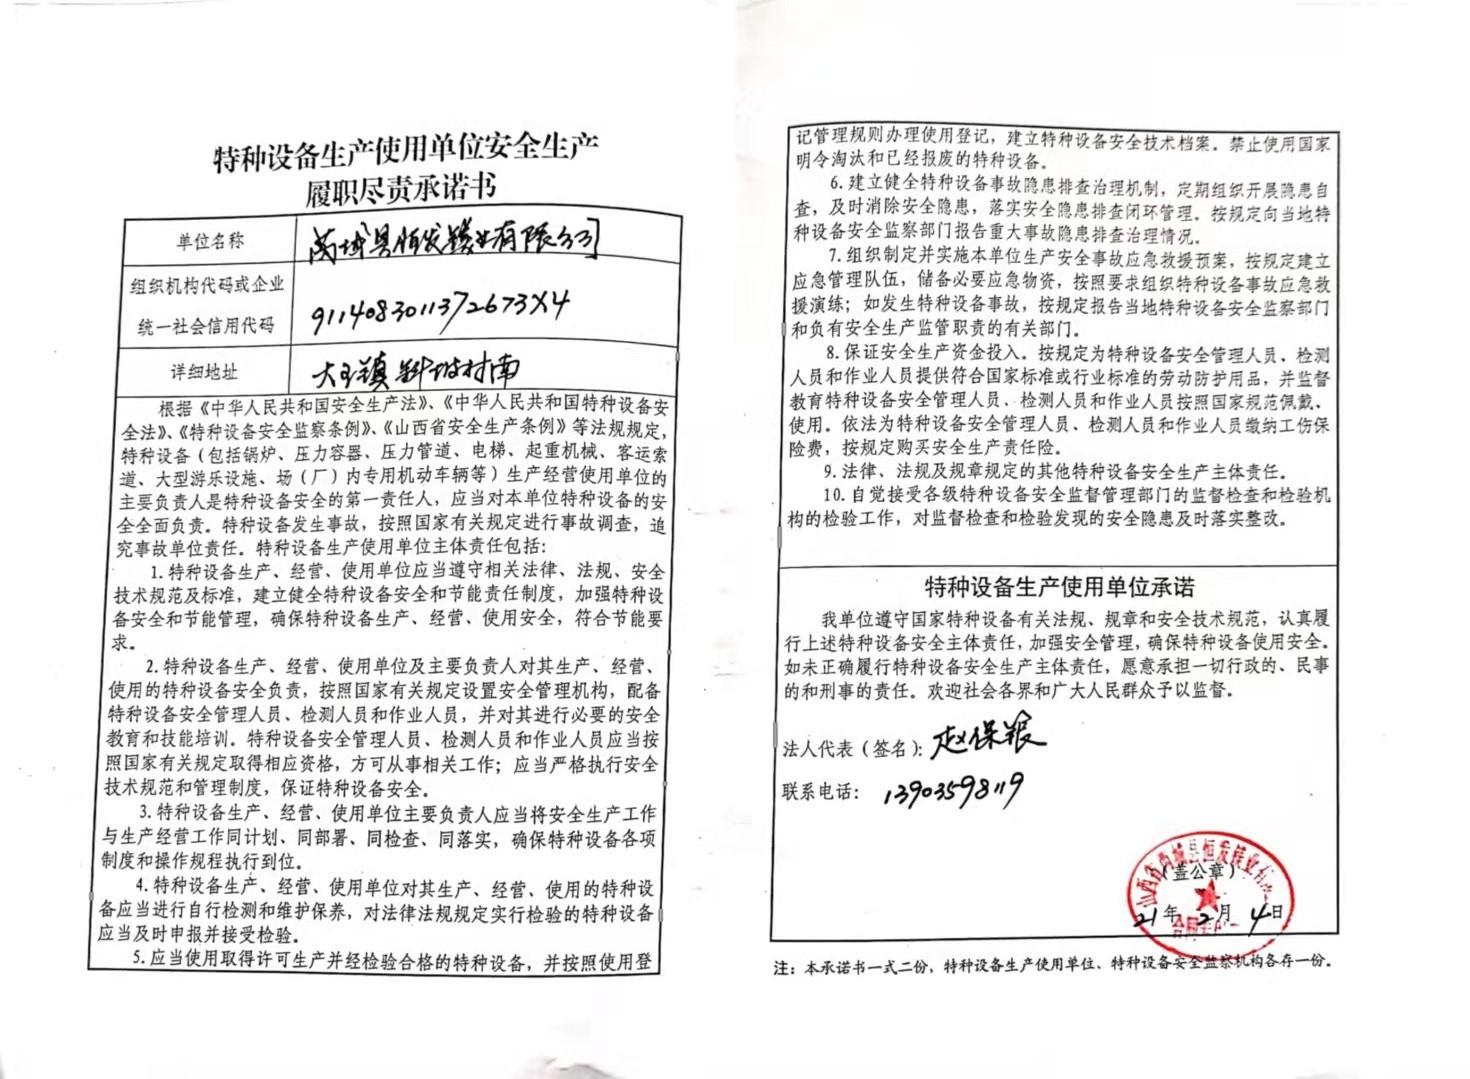 特种设备生产使用单位安全生产
履职尽责承诺书
单位名称
芮城县恒发镁业有限公司
组织机构代码或企业
统一社会信用代码
9114083011372673X4
详细地址
大王镇 斜坡村南
根据《中华人民共和国安全生产法》、《中华人民共和国特种设备安
全法》、《特种设备安全监察条例》、《山西省安全生产条例》等法规规定，
特种设备（包括锅炉、压力容器、压力管道、电梯、起重机械、客运索
道、大型游乐设施、场（厂）内专用机动车辆等）生产经营使用单位的
主要负责人是特种设备安全的第一责任人，应当对本单位特种设备的安
全全面负责。特种设备发生事故，按照国家有关规定进行事故调查，追
究事故单位责任。特种设备生产使用单位主体责任包括：
1. 特种设备生产、经营、使用单位应当遵守相关法律、法规、安全
技术规范及标准，建立健全特种设备安全和节能责任制度，加强特种设
备安全和节能管理，确保特种设备生产、经营、使用安全，符合节能要
求。
2. 特种设备生产、经营、使用单位及主要负责人对其生产、经营、
使用的特种设备安全负责，按照国家有关规定设置安全管理机构，配备
特种设备安全管理人员、检测人员和作业人员，并对其进行必要的安全
教育和技能培训。特种设备安全管理人员、检测人员和作业人员应当按
照国家有关规定取得相应资格，方可从事相关工作；应当严格执行安全
技术规范和管理制度，保证特种设备安全。
3. 特种设备生产、经营、使用单位主要负责人应当将安全生产工作
与生产经营工作同计划、同部署、同检查、同落实，确保特种设备各项
制度和操作规程执行到位。
4. 特种设备生产、经营、使用单位对其生产、经营、使用的特种设
备应当进行自行检测和维护保养，对法律法规规定实行检验的特种设备
应当及时申报并接受检验。
5. 应当使用取得许可生产并经检验合格的特种设备，并按照使用登
记管理规则办理使用登记，建立特种设备安全技术档案。禁止使用国家
明令淘汰和已经报废的特种设备。
6. 建立健全特种设备事故隐患排查治理机制，定期组织开展隐患自
查，及时消除安全隐患，落实安全隐患排查闭环管理。按规定向当地特
种设备安全监察部门报告重大事故隐患排查治理情况。
7. 组织制定并实施本单位生产安全事故应急救援预案，按规定建立
应急管理队伍，储备必要应急物资，按照要求组织特种设备事故应急救
援演练；如发生特种设备事故，按规定报告当地特种设备安全监察部门
和负有安全生产监管职责的有关部门。
8. 保证安全生产资金投入。按规定为特种设备安全管理人员、检测
人员和作业人员提供符合国家标准或行业标准的劳动防护用品，并监督
教育特种设备安全管理人员、检测人员和作业人员按照国家规范佩戴、
使用。依法为特种设备安全管理人员、检测人员和作业人员缴纳工伤保
险费，按规定购买安全生产责任险。
9. 法律、法规及规章规定的其他特种设备安全生产主体责任。
10. 自觉接受各级特种设备安全监督管理部门的监督检查和检验机
构的检验工作，对监督检查和检验发现的安全隐患及时落实整改。
特种设备生产使用单位承诺
我单位遵守国家特种设备有关法规、规章和安全技术规范，认真履
行上述特种设备安全主体责任，加强安全管理，确保特种设备使用安全。
如未正确履行特种设备安全生产主体责任，愿意承担一切行政的、民事
的和刑事的责任。欢迎社会各界和广大人民群众予以监督。
法人代表（签名）：赵保银
联系电话： 13903598119
山西省芮城县恒发镁业有
（盖公章）
21年 2月 4日
注：本承诺书一式二份，特种设备生产使用单位、特种设备安全监察机构各存一份。